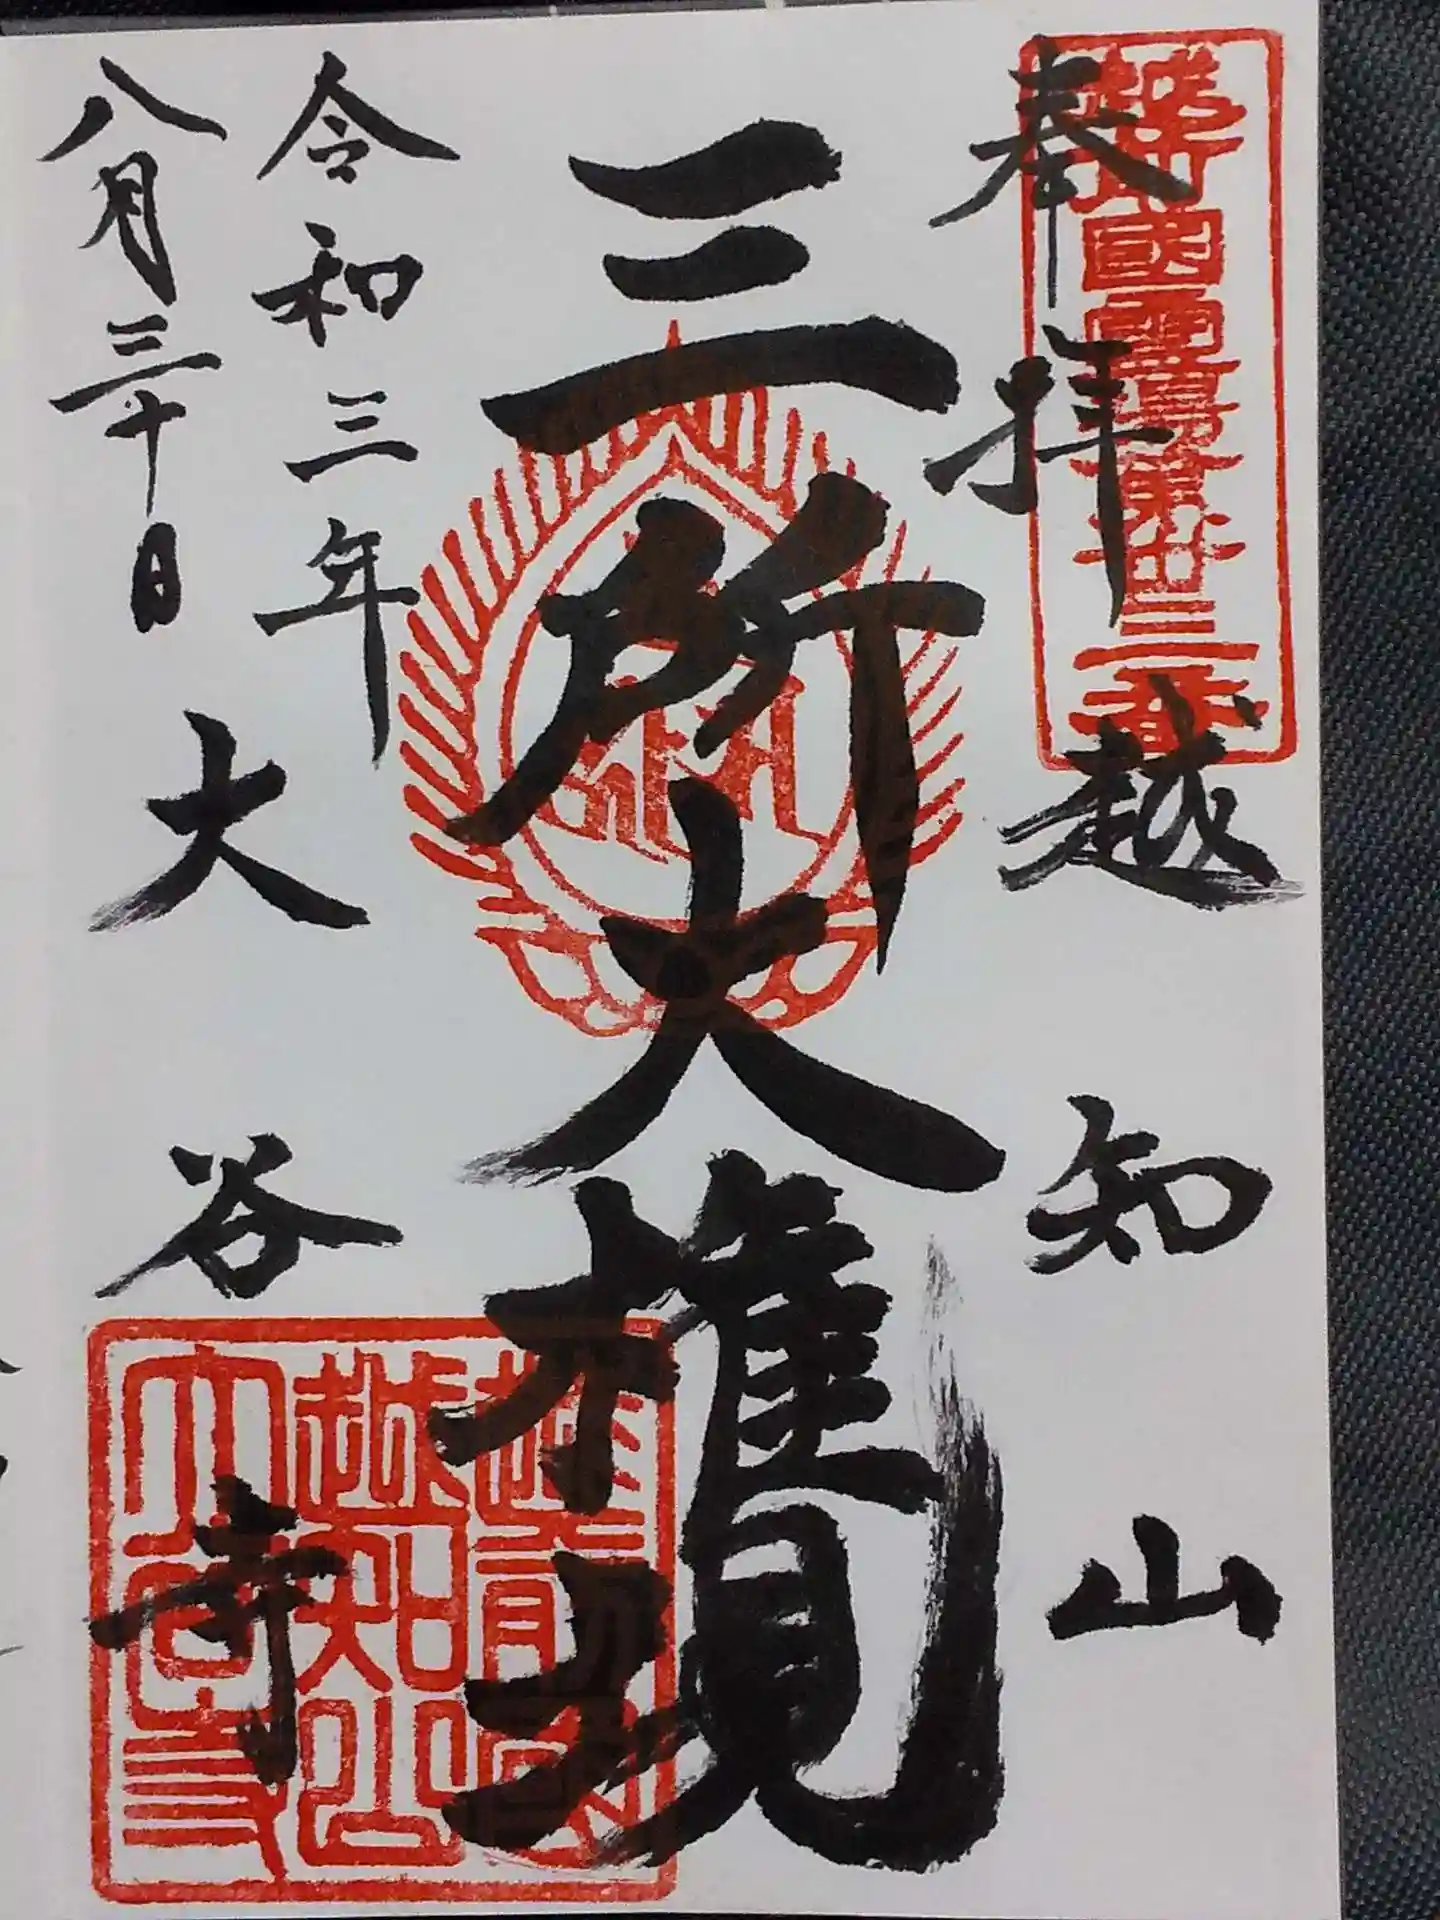 奉拝
越知山
三所大権現
令和三年
八月三十日
大谷寺
越前國
越知山
大谷寺